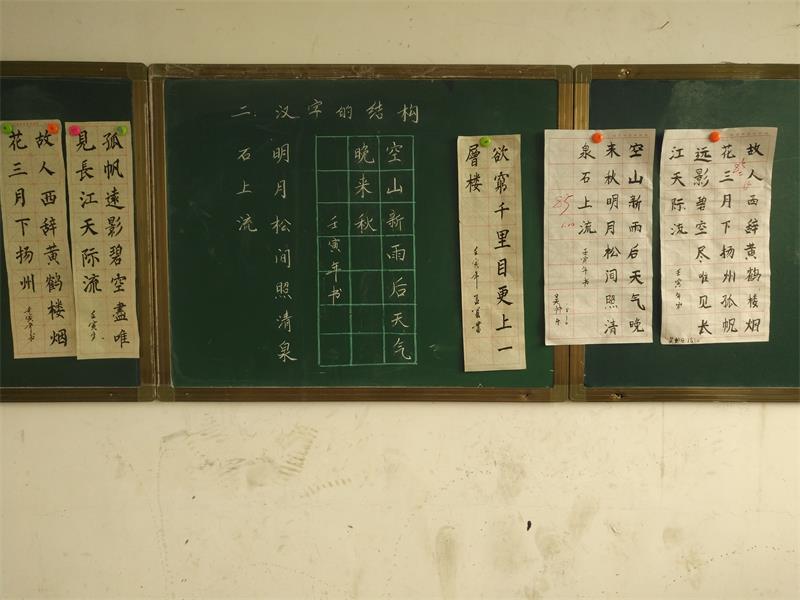 故人西辞黄鹤楼烟
花三月下扬州
壬寅年书
孤帆遠影碧空盡唯
見長江天际流
壬寅
二.汉字的结构
空山新雨后天气
晚来秋
壬寅年书
明月松间照清泉
石上流
欲窮千里目更上一
層楼
壬寅年
空山新雨后天气晚
来秋明月松间照清
泉石上流
壬寅年书
85
故人西辞黄鹤楼烟
花三月下扬州孤帆
远影碧空尽唯见长
江天际流
壬寅年